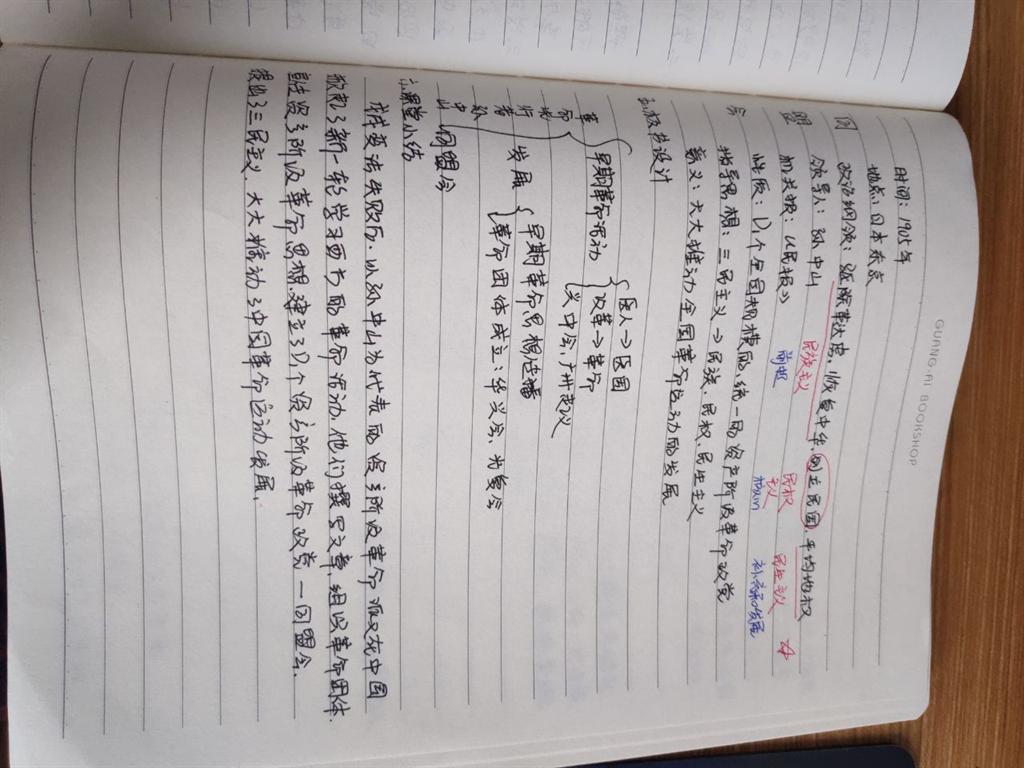 GUANG.AI BOOKSHOP
时间：1905年
地点：日本东京
同盟会
政治纲领：驱除鞑虏，恢复中华，创立民国，平均地权
民族主义 民权主义 民生主义
前提 核心 补充和发展
领导人：孙中山
机关报：《民报》
性质：第1个全国规模的统一的资产阶级革命政党
指导思想：三民主义→民族、民权、民生主义
意义：大大推动全国革命运动的发展
板书设计
革命先行者孙中山
早期革命活动
医人→医国
改革→革命
兴中会，广州起义
发展
早期革命思想传播
革命团体成立：华兴会，光复会
同盟会
课堂小结
戊戌变法失败后，以孙中山为代表的资产阶级革命派又在中国
掀起了新一轮学习西方的革命活动，他们撰写文章，组织革命团体
宣传资产阶级革命思想，建立了第1个资产阶级革命政党—同盟会，
提出了三民主义，大大推动了中国革命运动发展。